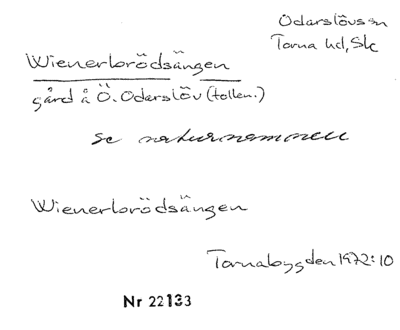 Odarslövs sn
Torna hd, Sk
Wienerbrödsängen
gård å Ö. Odarslöv (tollen.)
se naturnamnen
Wienerbrödsängen
Tornabygden 1972:10
Nr 22133